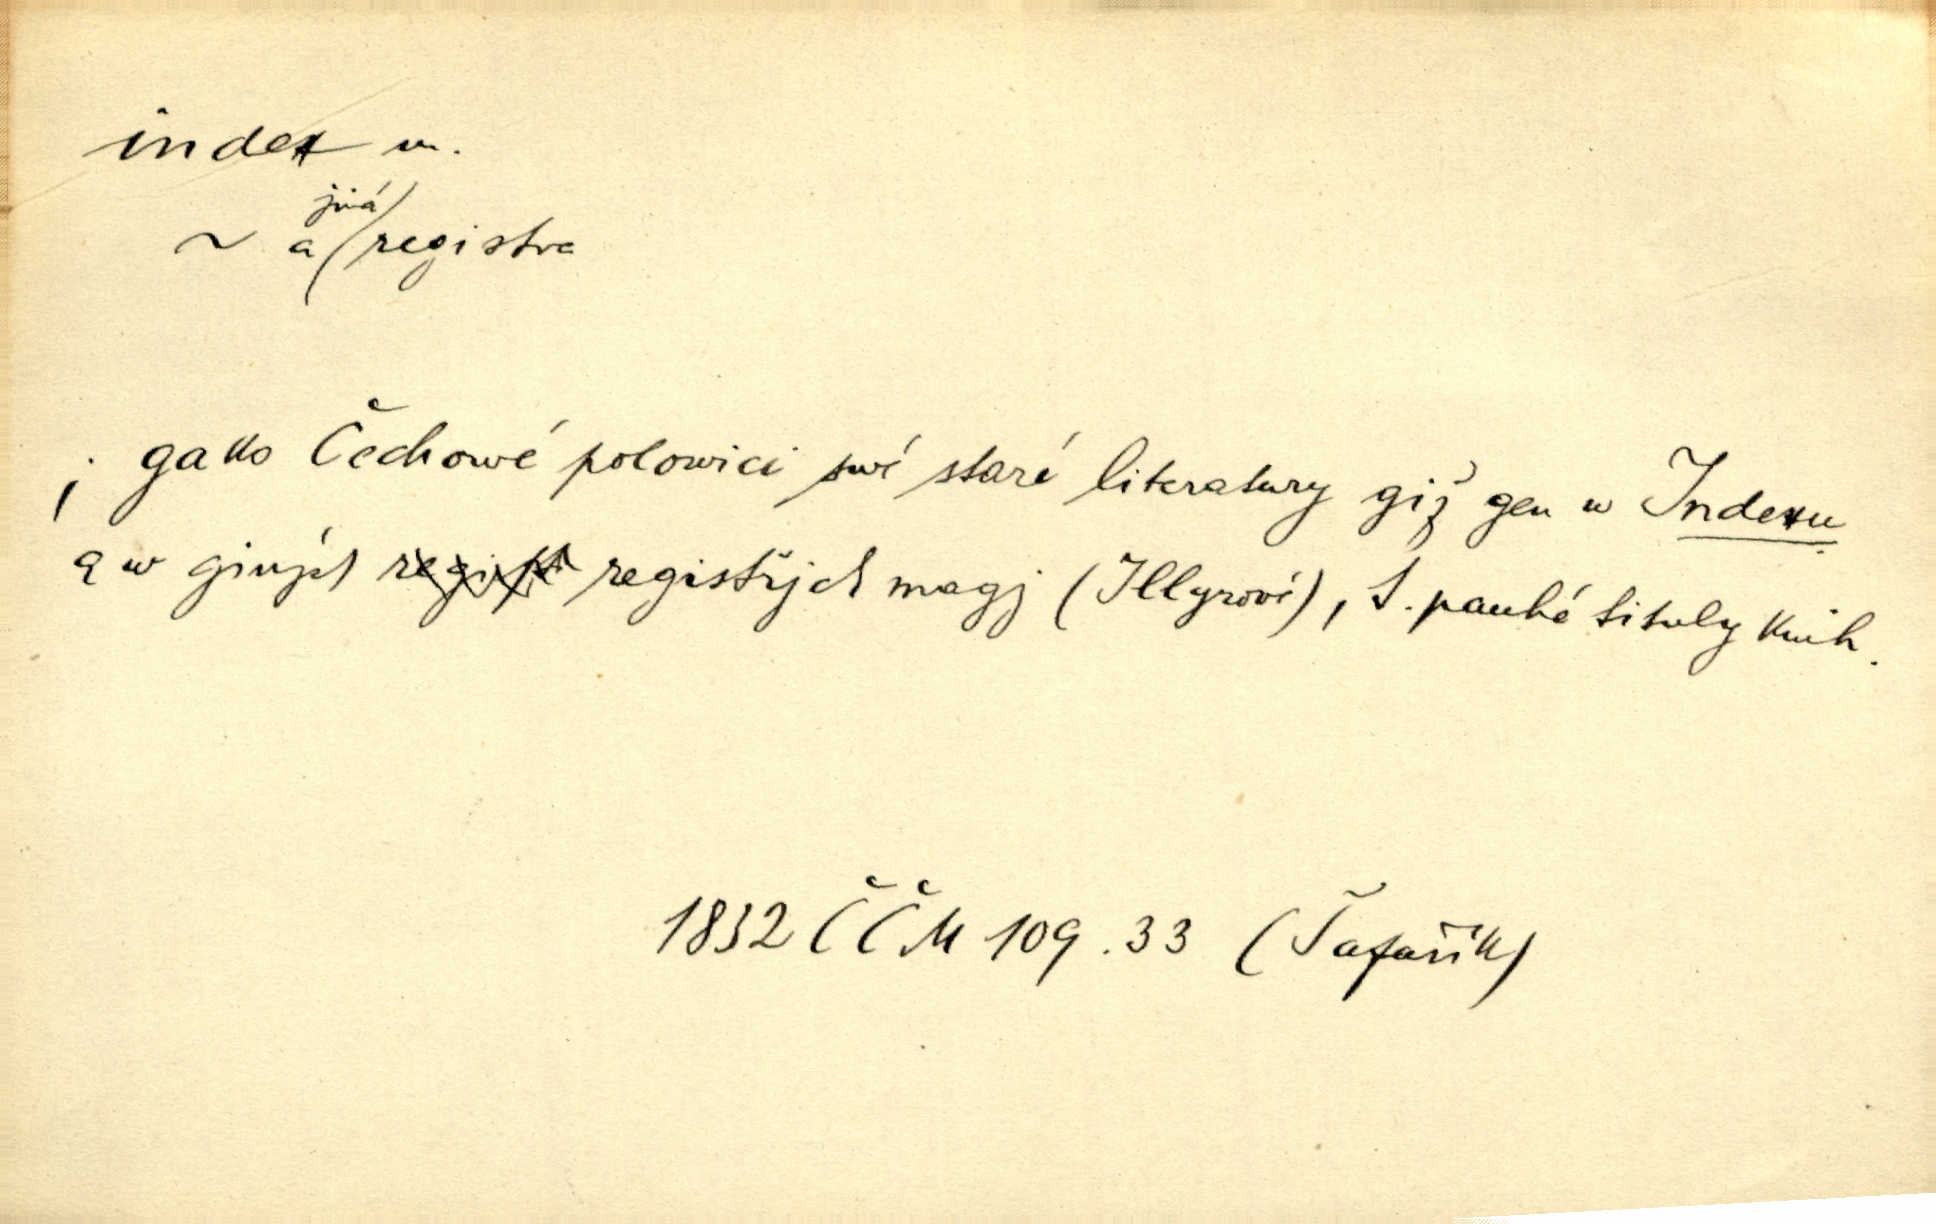 index m.
~ a jiná registra
; gako Čechowé polowici swé staré literatury giž gen w Indexu
a w giných registřjch magj (Illyrové), t. pauhé tituly knih.
1832 ČČM 109.33 (Šafařík)